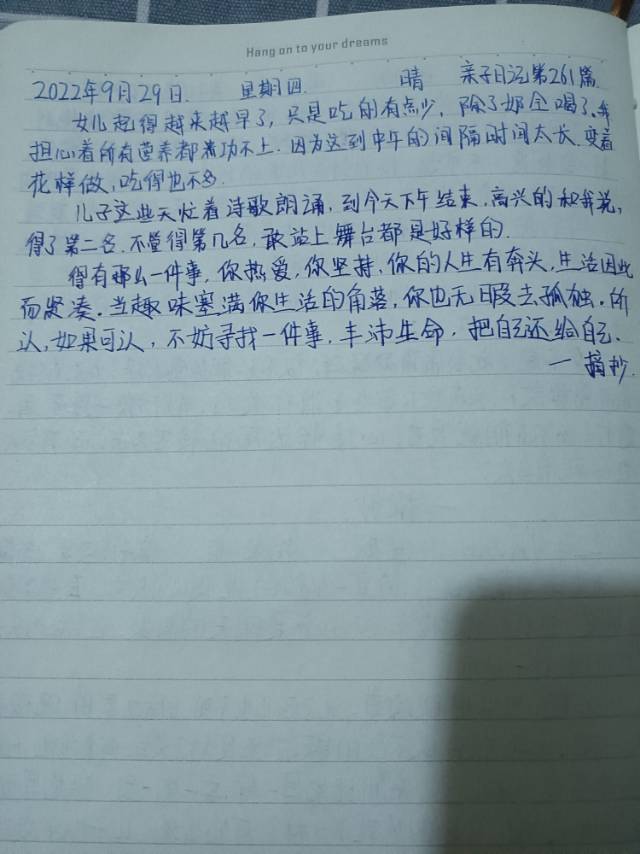 Hang on to your dreams
2022年9月29日. 星期四. 晴 亲子日记第261篇
女儿起得越来越早了，只是吃的有点少，除了奶全喝了，我
担心着所有营养都靠功不上.因为这到中午的间隔时间太长.变着
花样做，吃得也不多.
儿子这些天忙着诗歌朗诵，到今天下午结束，高兴的和我说，
得了第二名.不管得第几名，敢站上舞台都是好样的.
得有那么一件事，你热爱，你坚持，你的人生有奔头，生活因此
而紧凑.当趣味塞满你生活的角落，你也无暇去孤独.所
以，如果可以，不妨寻找一件事，丰沛生命，把自己还给自己.
一 摘抄.